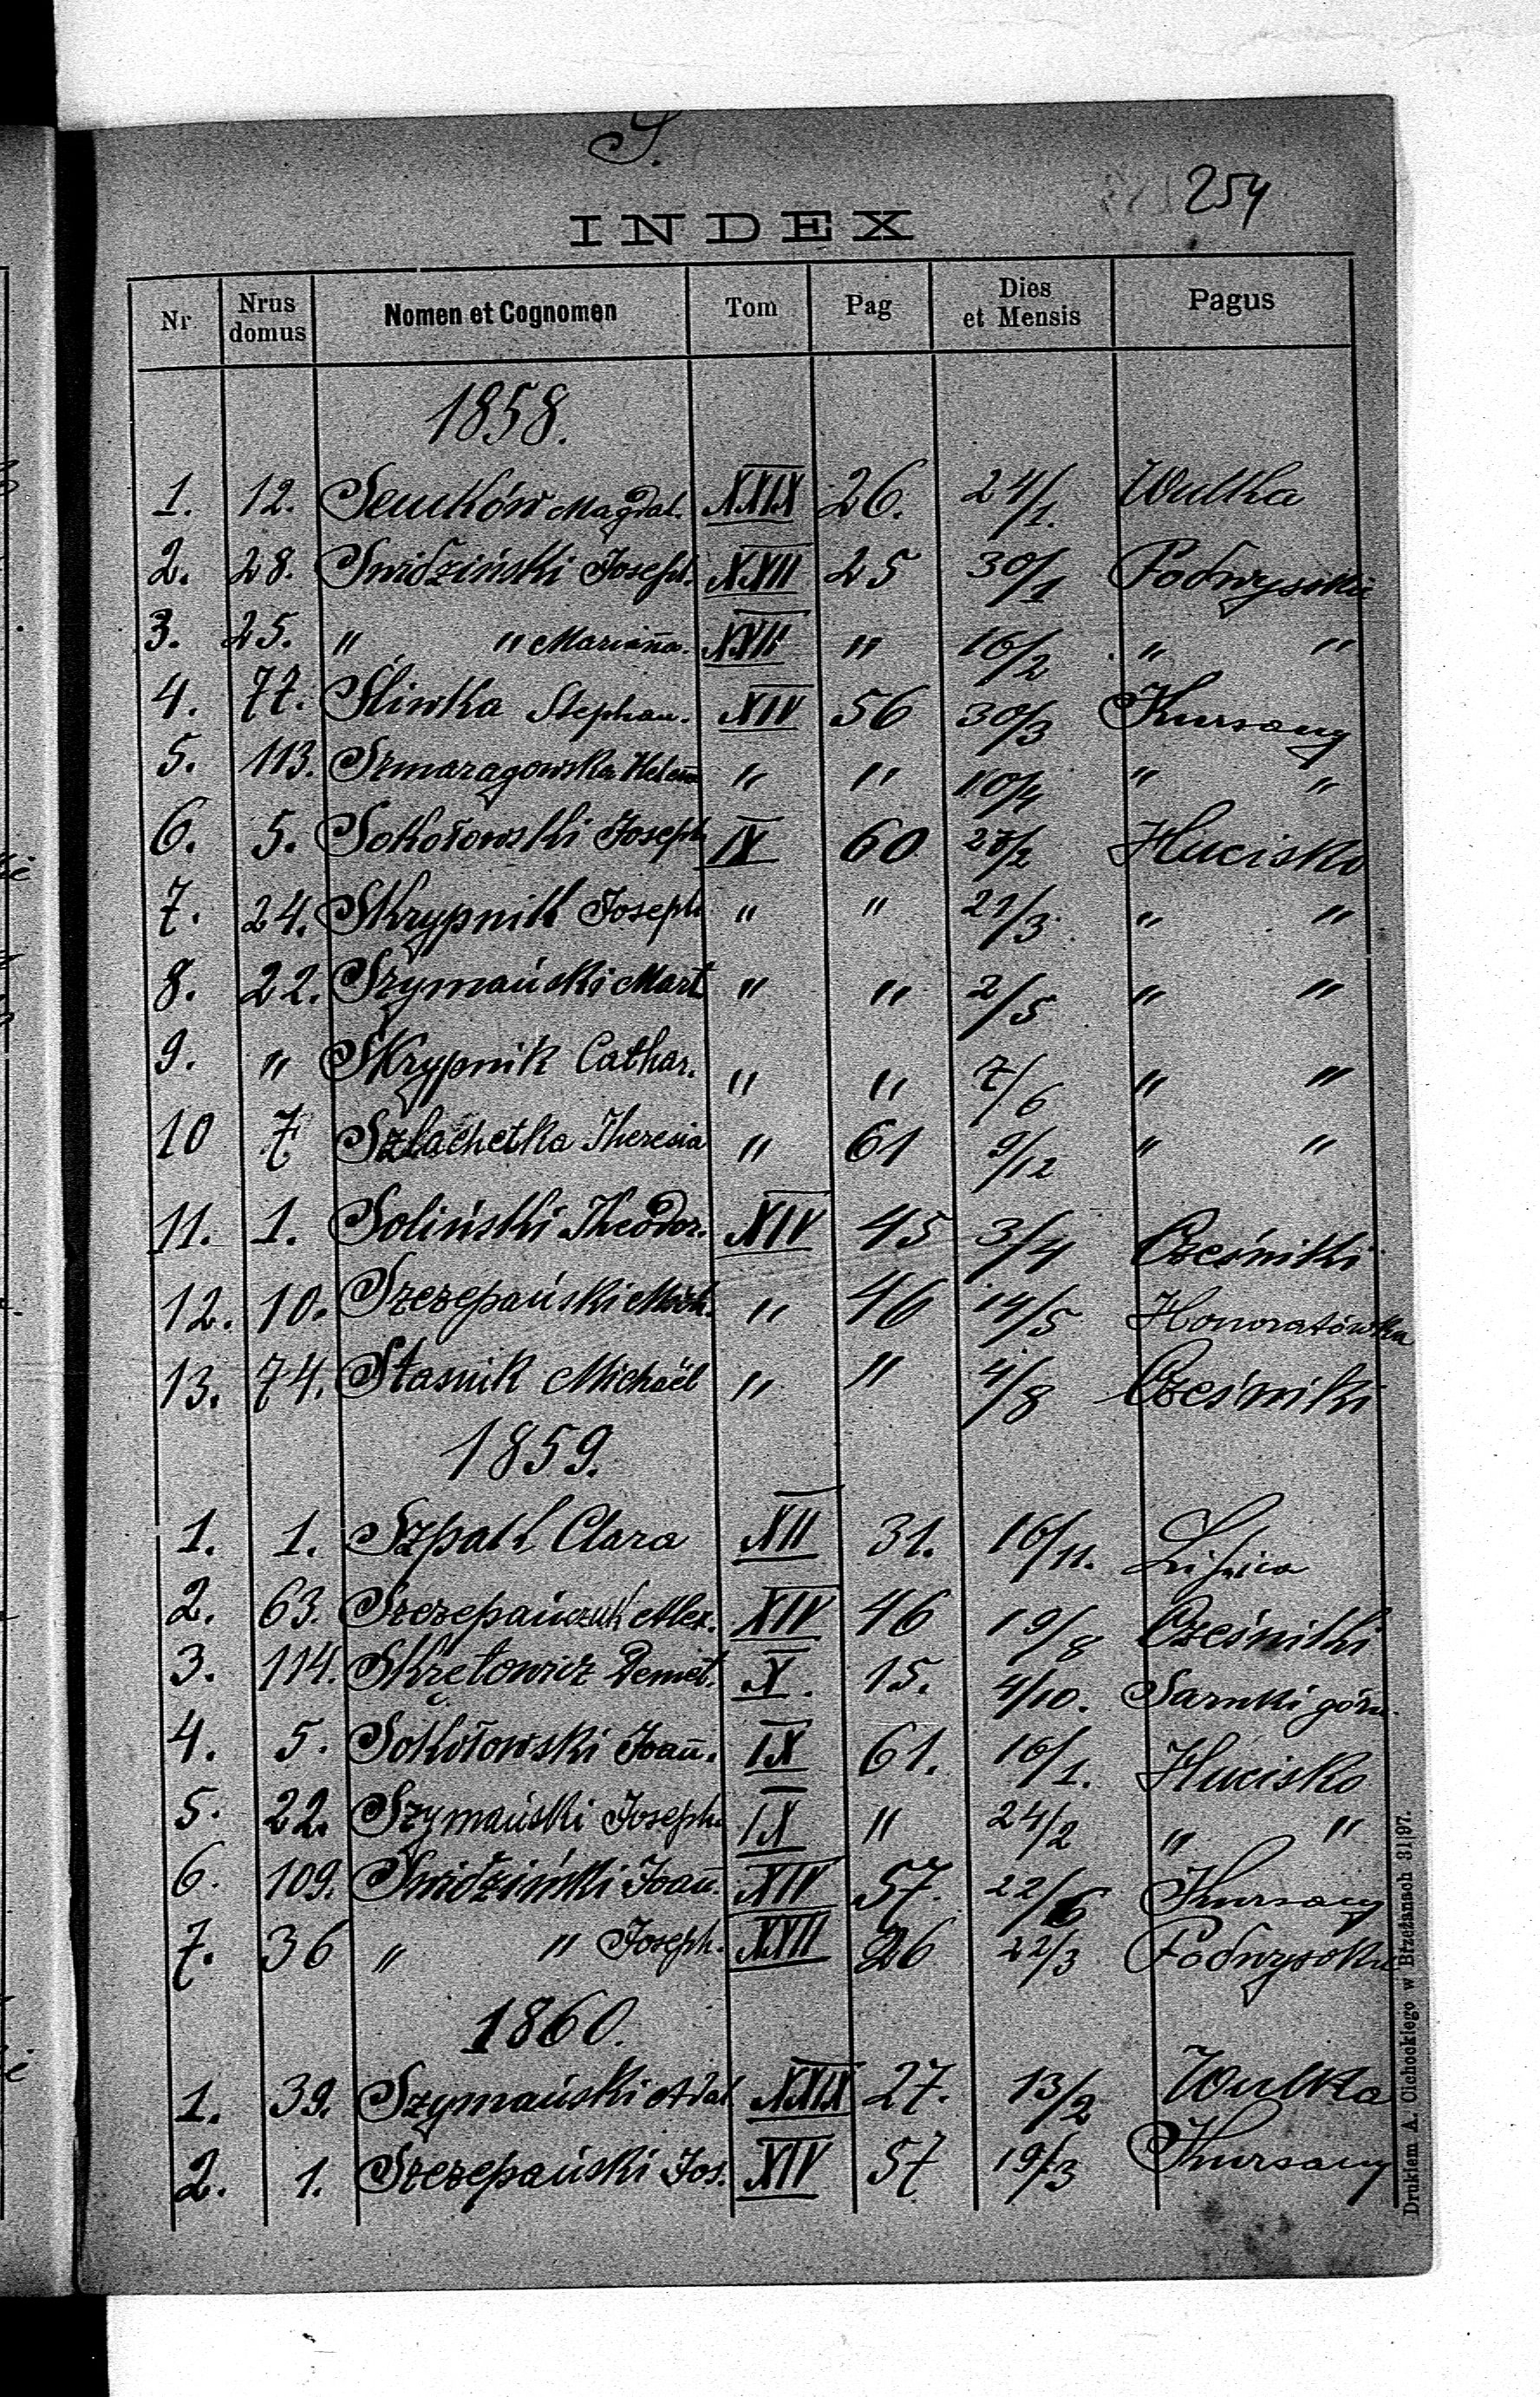 S.
254
INDEX
Nr Nrus domus Nomen et Cognomen Tom Pag Dies et Mensis Pagus
1858.
1. 12. Senków Magdal. XXIX 26. 24/1. Wulka
2. 28. Swidziński Joseph. XXII 25 30/1 Podwysokie
3. 25. " " Marian̄a. XXII " 16/2 " "
4. 77. Sliwka Stephan. XIV 56 30/3 Kurzany
5. 113. Szmaragowska Helena " " 10/4 " "
6. 5. Sokołowski Joseph IX 60 27/2 Hucisko
7. 24. Skrypnik Joseph " " 21/3 " "
8. 22. Szymański Mart " " 2/5 " "
9. " Skrypnik Cathar. " " 7/6 " "
10 7 Szlachetka Theresia " 61 9/12 " "
11. 1. Soliński Theodor. XIV 45 3/4 Cześniki
12. 10. Szczepański Mich. " 46 14/5 Honoratówka
13. 74. Stasnik Michaël " " 4/8 Cześniki
1859.
1. 1. Szpak Clara XII 31. 16/11. Lipica
2. 63. Szczepańczuk Alex. XIV 46 19/8 Cześniki
3. 114. Skrętowicz Demet. X. 15. 4/10. Sarnki górn.
4. 5. Sokołowski Joan̄. IX 61. 16/1. Hucisko
5. 22. Szymański Joseph. IX " 24/2 " "
6. 109. Swidziński Joan̄. XIV 57. 22/6 Kurzany
7. 36 " " Joseph. XXII 26 22/3 Podwysokie
1860.
1. 39. Szymański Adal. XXIX 27. 13/2 Wulka
2. 1. Szczepański Jos. XIV 57 19/3 Kurzany
Drukiem A. Cichockiego w Brzeżanach 31|97.